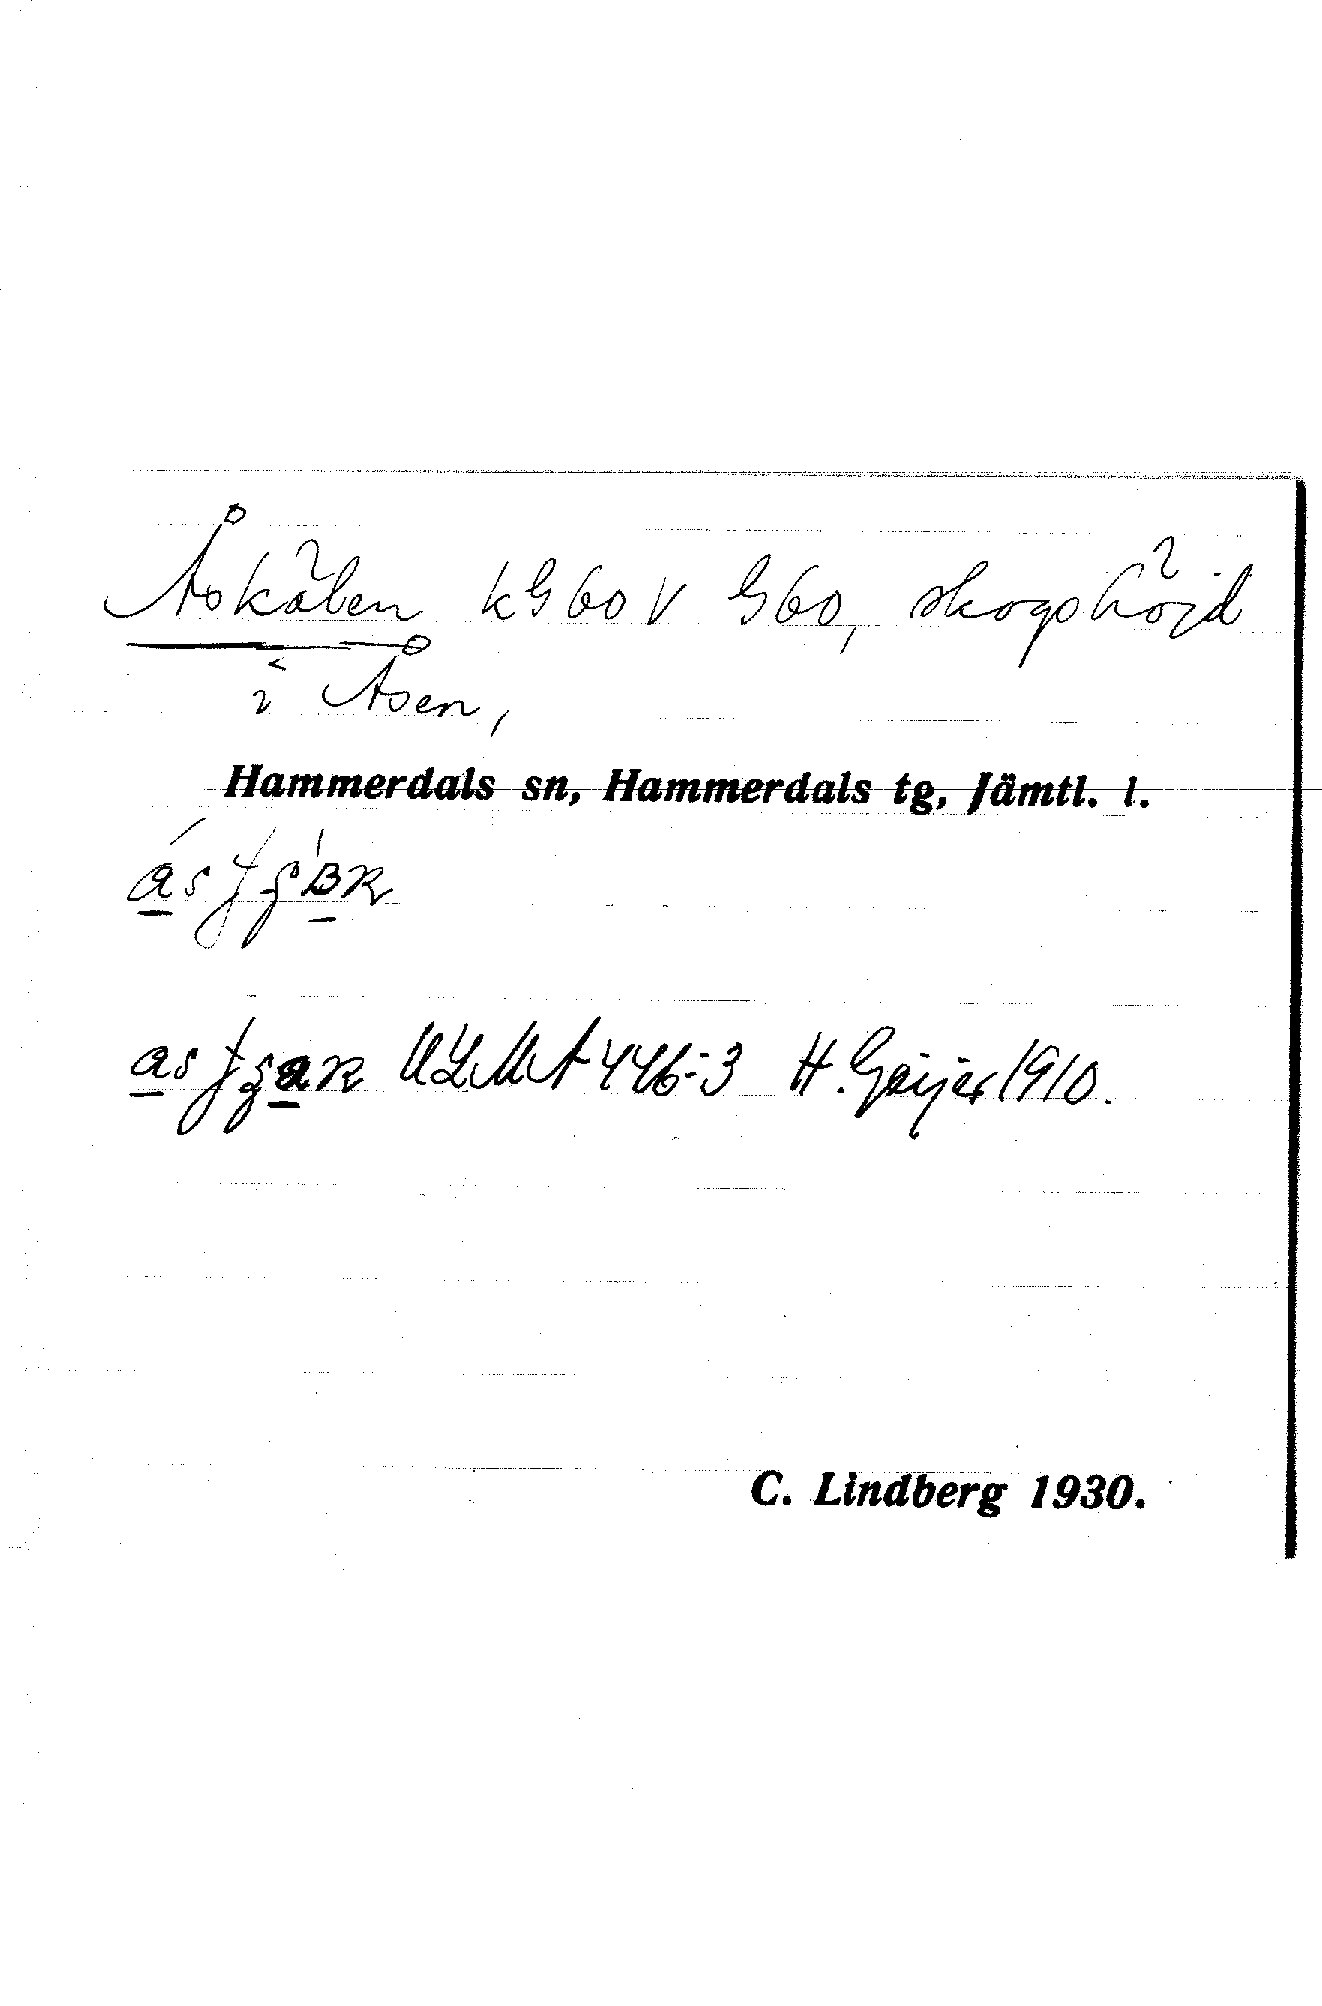 Åskälen kG60V G60, skogshöjd
i Åsen,
Hammerdals sn, Hammerdals tg, Jämtl. l.
ULMA 446:3 H. Geijer 1910.
C. Lindberg 1930.